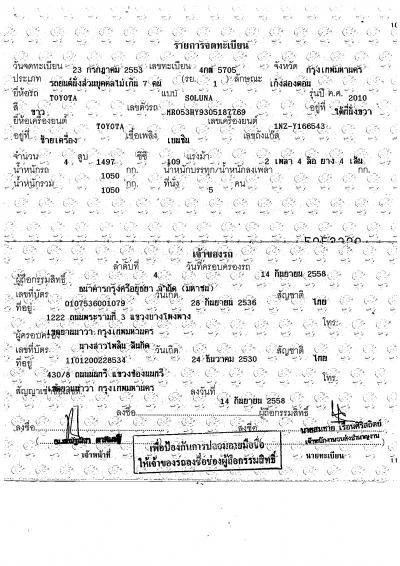 รายการจดทะเบียน
วันจดทะเบียน 23 กรกฎาคม 2553 เลขทะเบียน 4กต 5705 จังหวัด กรุงเทพมหานคร
ประเภท รถยนต์นั่งส่วนบุคคลไม่เกิน 7 คน (รย. 1) ลักษณะ เก๋งสองตอน
ยี่ห้อรถ TOYOTA แบบ SOLUNA รุ่นปี ค.ศ. 2010
สี ขาว เลขตัวรถ MR053HY9305187769 อยู่ที่
ยี่ห้อเครื่องยนต์ TOYOTA เลขเครื่องยนต์ 1NZ-Y166543
อยู่ที่ ซ้ายเครื่อง เชื้อเพลิง เบนซิน เลขถังแก๊ส
จำนวน 4 สูบ 1497 ซีซี 109 แรงม้า 2 เพลา 4 ล้อ ยาง 4 เส้น
น้ำหนักรถ 1050 กก. น้ำหนักบรรทุก/น้ำหนักลงเพลา กก.
น้ำหนักรวม 1050 กก. ที่นั่ง 5 คน
เจ้าของรถ
ลำดับที่ 4 วันที่ครอบครองรถ 14 กันยายน 2558
ผู้ถือกรรมสิทธิ์ ธนาคารกรุงศรีอยุธยา จำกัด (มหาชน)
เลขที่บัตร 0107536001079 วันเกิด 28 กันยายน 2536 สัญชาติ ไทย
ที่อยู่ 1222 ถนนพระรามที่ 3 แขวงบางโพงพาง
เขตยานนาวา กรุงเทพมหานคร โทร.
ผู้ครอบครอง
เลขที่บัตร 1101200228534 วันเกิด 24 ธันวาคม 2530 สัญชาติ ไทย
ที่อยู่ 430/8 ถนนนนทรี แขวงช่องนนทรี
เขตยานนาวา กรุงเทพมหานคร โทร.
สัญญาเช่าซื้อเลขที่ ลงวันที่ 14 กันยายน 2558
ลงชื่อ ผู้ถือกรรมสิทธิ์
ลงชื่อ ลงชื่อ
เจ้าหน้าที่ นายทะเบียน
เพื่อป้องกันการปลอมลายมือชื่อ
ให้เจ้าของรถลงชื่อช่องผู้ถือกรรมสิทธิ์